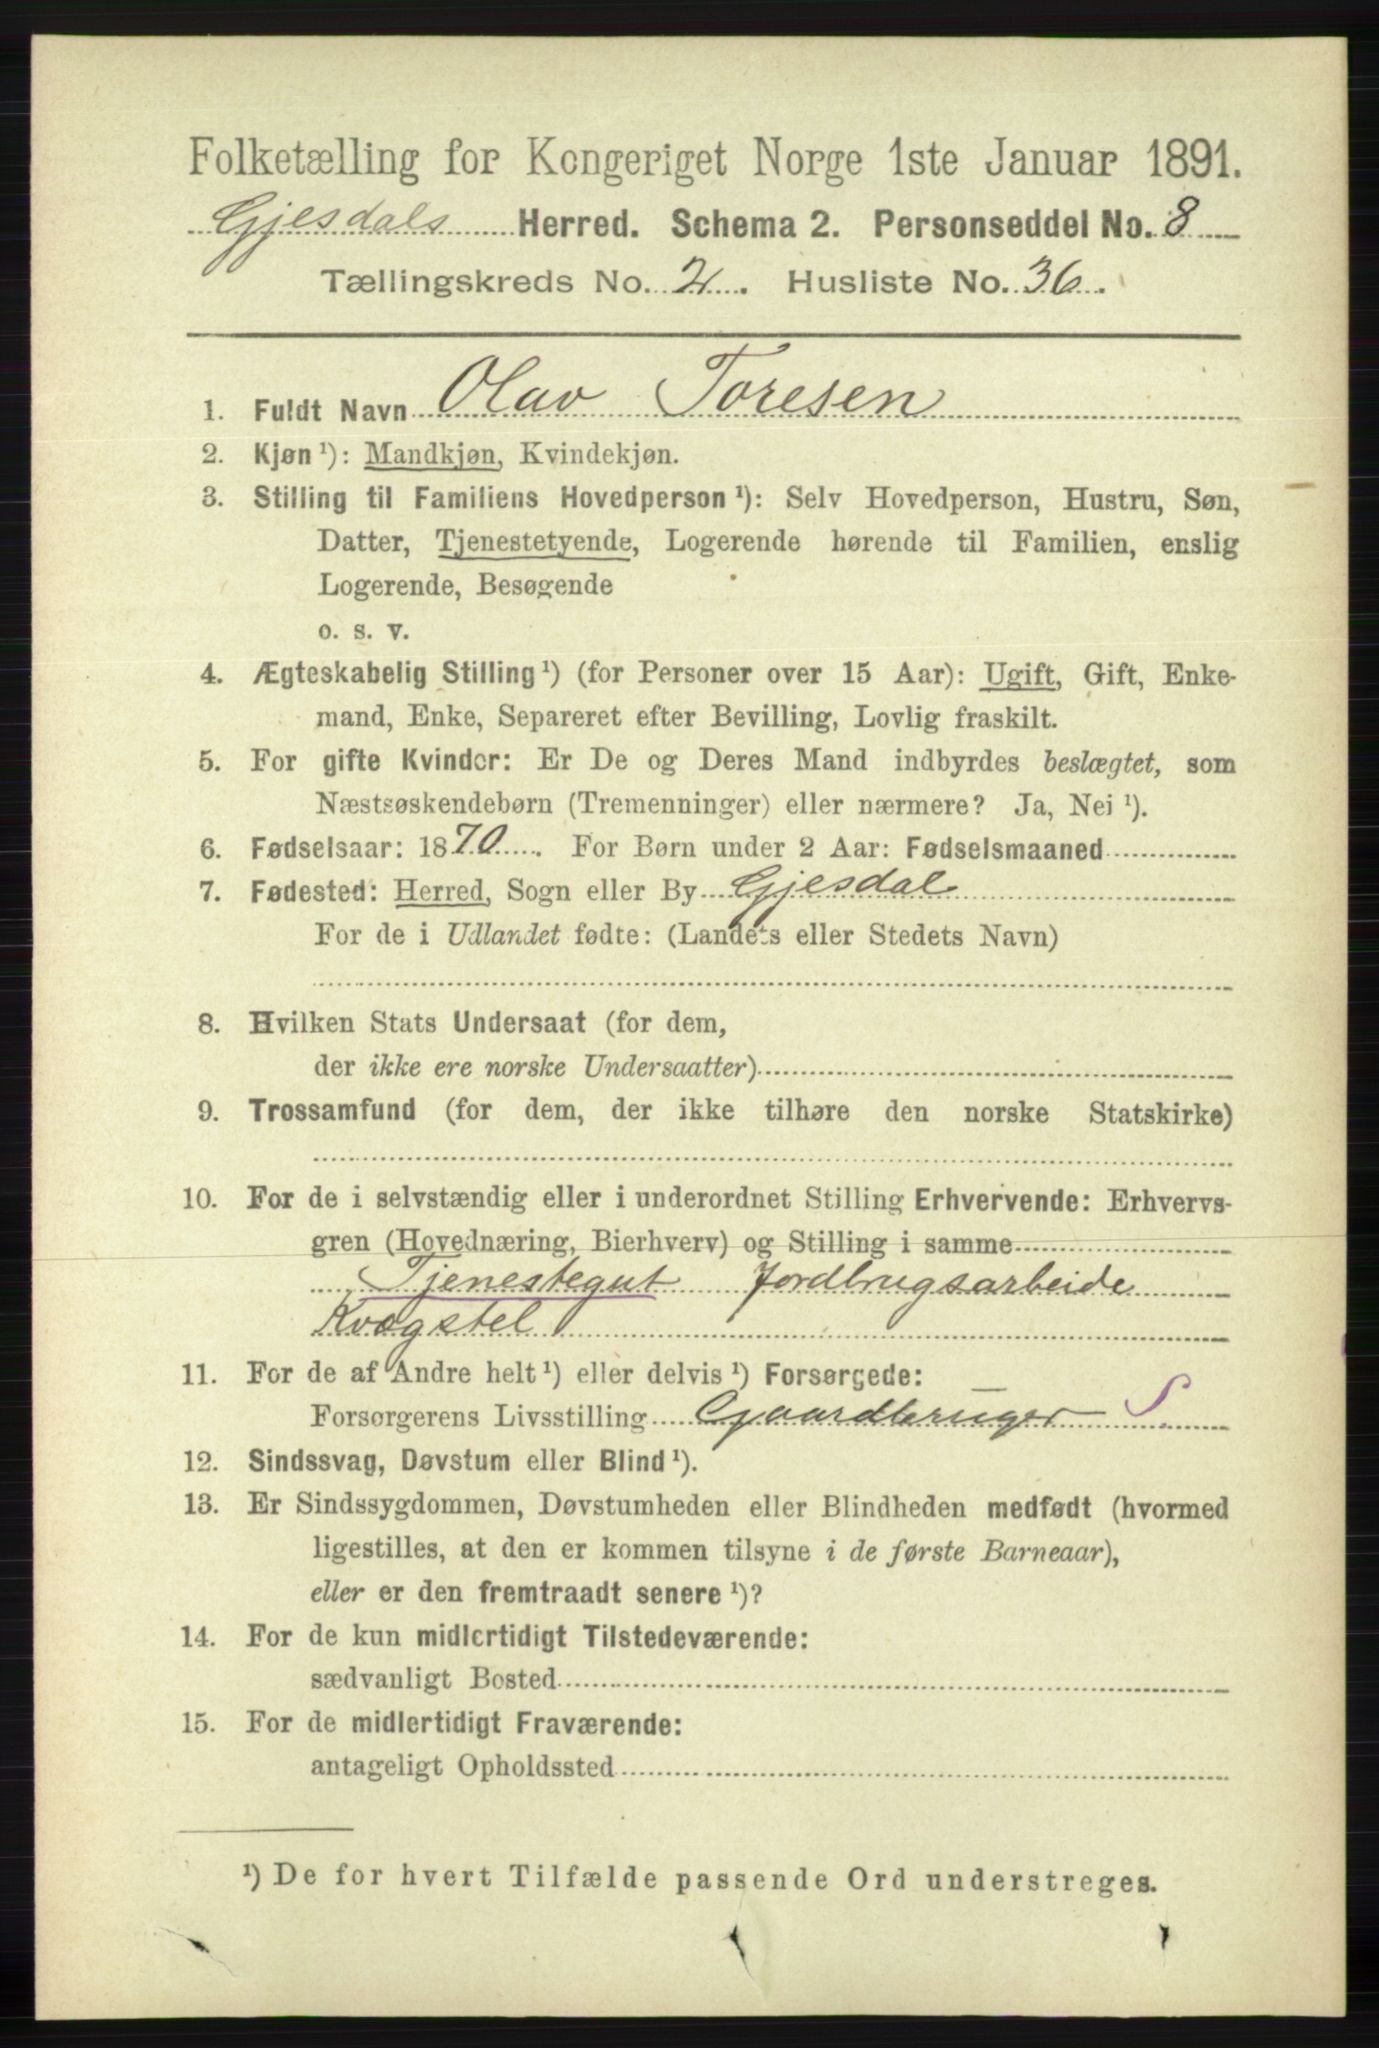 Folketælling for Kongeriget Norge 1ste Januar 1891.
Gjesdals Herred. Schema 2. Personseddel No. 8
Tællingskreds No. 2. Husliste No. 36.
1. Fuldt Navn Olav Toresen
2. Kjøn ¹): Mandkjøn, Kvindekjøn.
3. Stilling til Familiens Hovedperson ¹): Selv Hovedperson, Hustru, Søn,
Datter, Tjenestetyende, Logerende hørende til Familien, enslig
Logerende, Besøgende
o. s. v.
4. Ægteskabelig Stilling ¹) (for Personer over 15 Aar): Ugift, Gift, Enke-
mand, Enke, Separeret efter Bevilling, Lovlig fraskilt.
5. For gifte Kvinder: Er De og Deres Mand indbyrdes beslægtet, som
Næstsøskendebørn (Tremenninger) eller nærmere? Ja, Nei ¹).
6. Fødselsaar: 1870. For Børn under 2 Aar: Fødselsmaaned
7. Fødested: Herred, Sogn eller By Gjesdal
For de i Udlandet fødte: (Landets eller Stedets Navn)
8. Hvilken Stats Undersaat (for dem,
der ikke ere norske Undersaatter)
9. Trossamfund (for dem, der ikke tilhøre den norske Statskirke)
10. For de i selvstændig eller i underordnet Stilling Erhvervende: Erhvervs-
gren (Hovednæring, Bierhverv) og Stilling i samme
Tjenestegut Jordbrugsarbeide
Kvægstel
11. For de af Andre helt ¹) eller delvis ¹) Forsørgede:
Forsørgerens Livsstilling Gaardbruger S.
12. Sindssvag, Døvstum eller Blind ¹).
13. Er Sindssygdommen, Døvstumheden eller Blindheden medfødt (hvormed
ligestilles, at den er kommen tilsyne i de første Barneaar),
eller er den fremtraadt senere ¹)?
14. For de kun midlertidigt Tilstedeværende:
sædvanligt Bosted
15. For de midlertidigt Fraværende:
antageligt Opholdssted
¹) De for hvert Tilfælde passende Ord understreges.